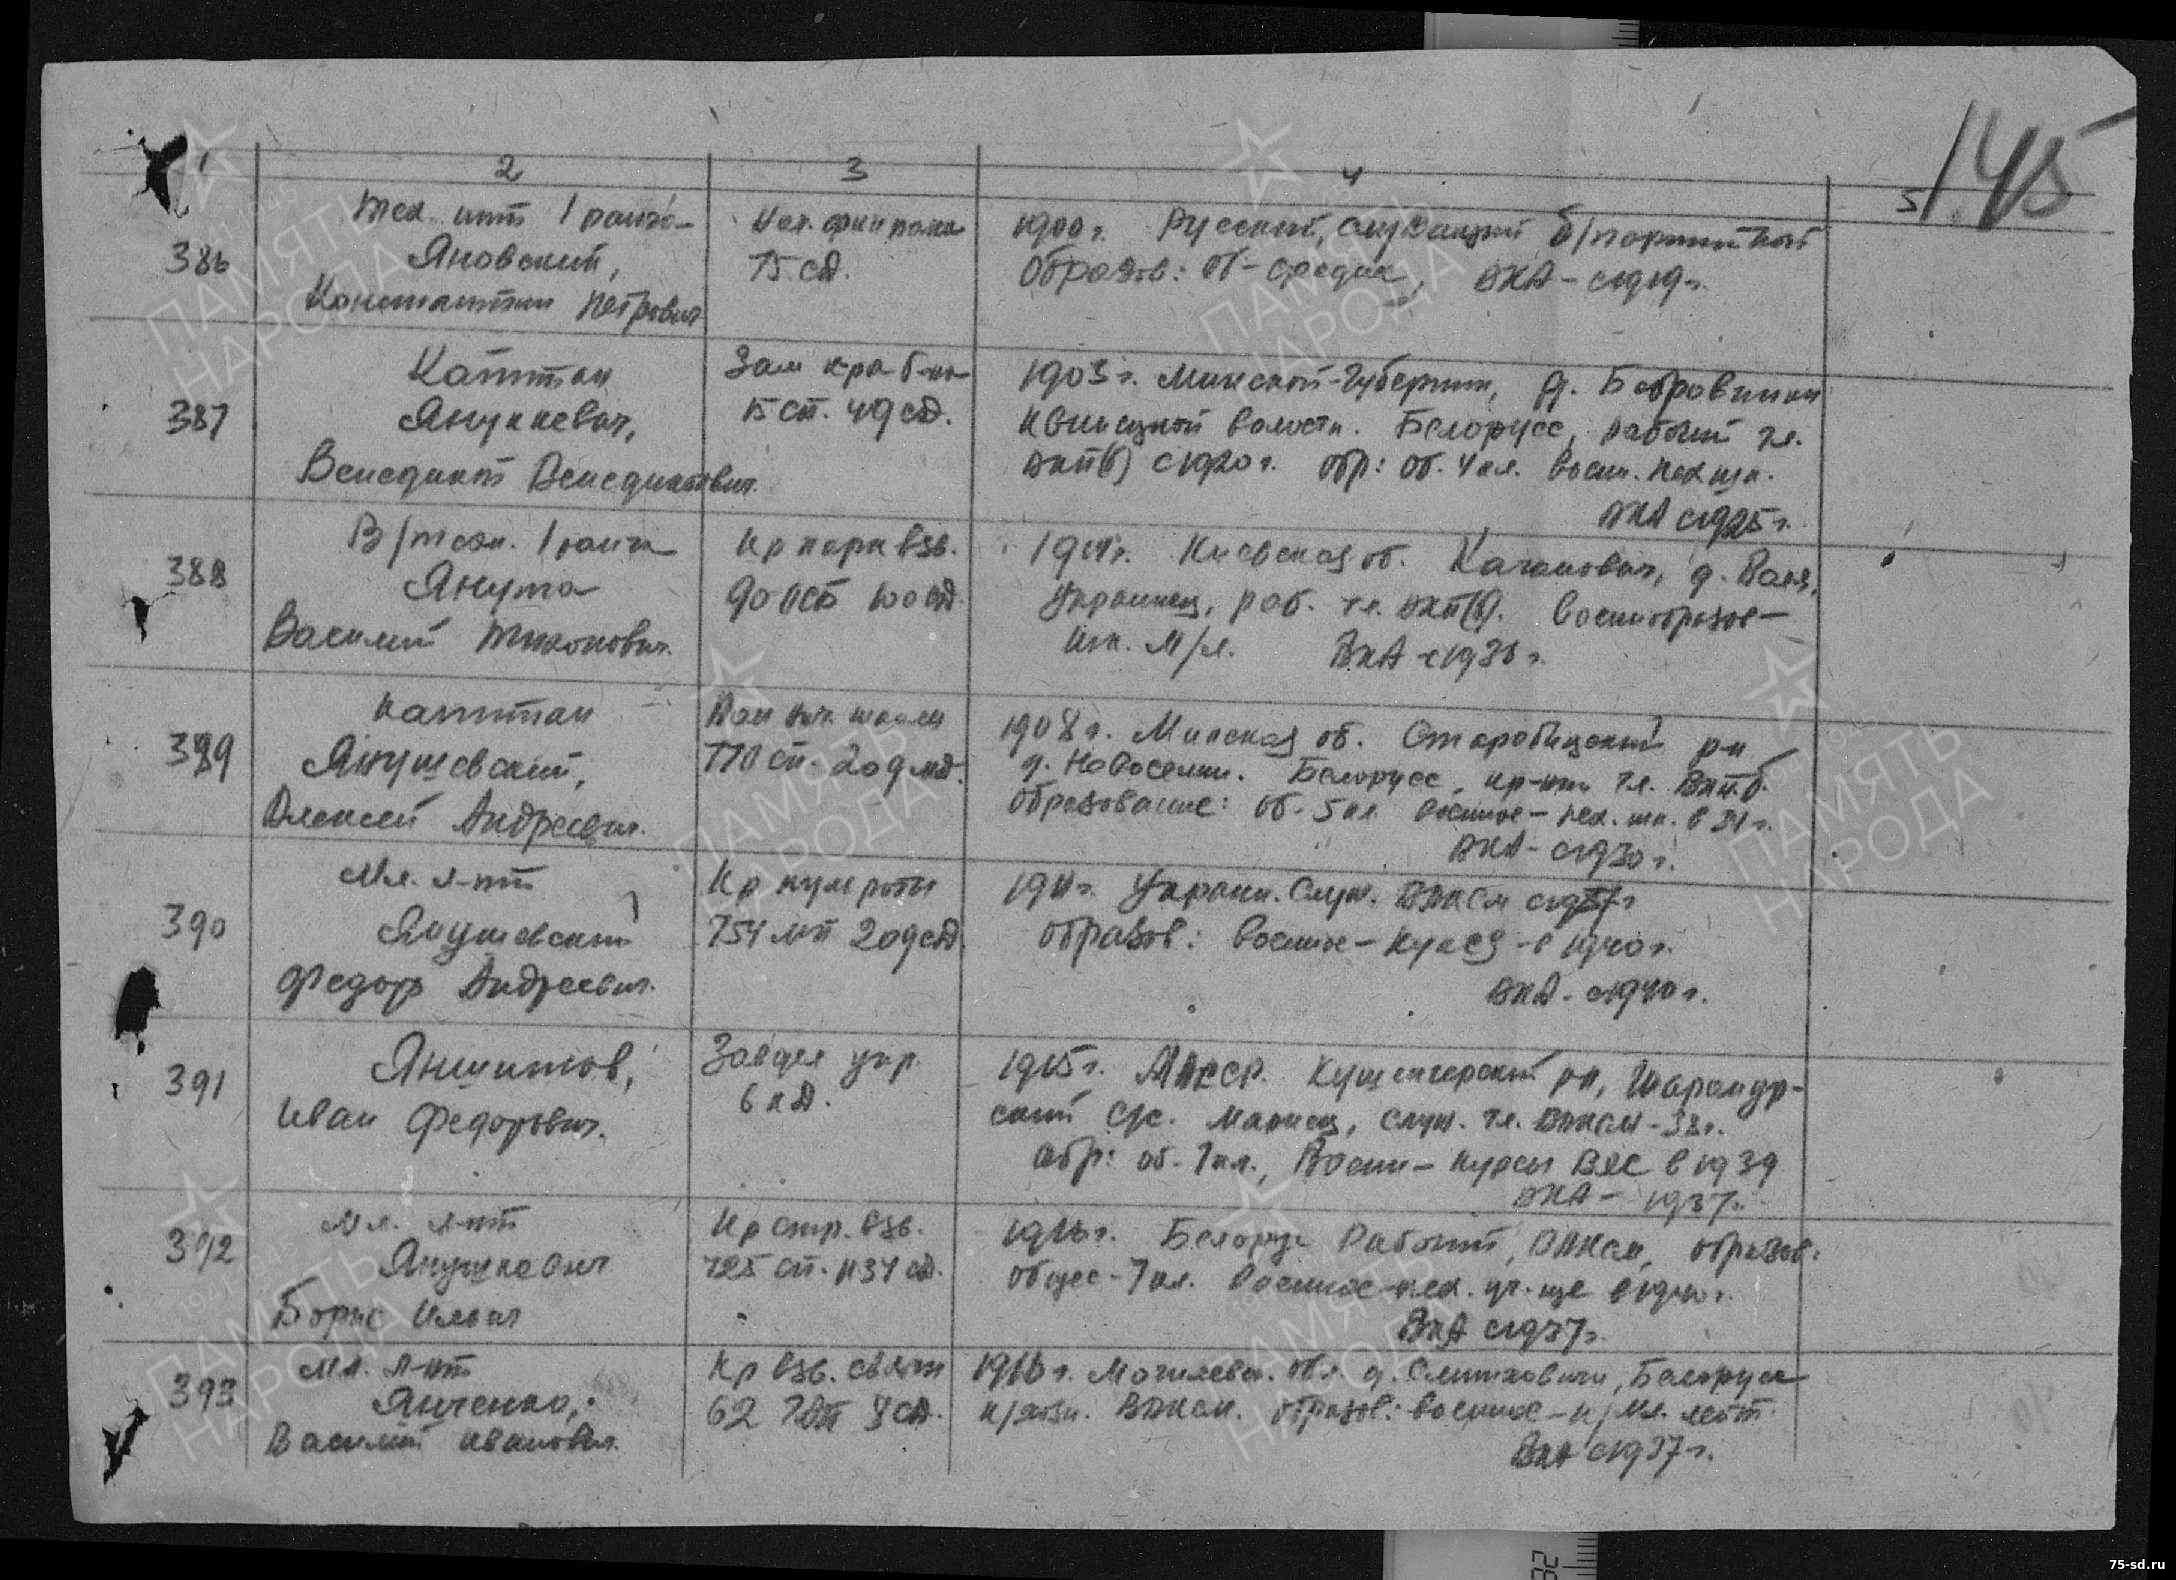 145
1 2 3 4 5
386
Тех. инт 1 ранга
Яновский,
Константин Петрович
Нач. фин части
75 сд.
1900 г. Русский, служащий б/партийный
Образов: об - средн, РККА - с 1919 г.
387
Капитан
Янукевич,
Бенедикт Бенедиктович.
Зам к-ра б-на
15 сп. 49 сд.
1903 г. Минской-губернии, д. Бобровники
волости. Белорусс, рабочий чл.
ВКП(б) с 1920 г. обр: об. 4 кл. воен. пех шк.
РКА с 1925 г.
388
В/техн. 1 ранга
Янута
Василий Тихонович.
К-р парк взв.
90 ОСБ 100 сд.
Киевская об. Каганович, д.
Украинец, раб. чл. ВКП(б). Военн образов-
шк. М/л. РКА с 1936 г.
389
Капитан
Янушевский,
Алексей Андреевич.
Нач школы
770 сп. 209 мд.
1908 г. Минская об. Старобицский р-н
д. Новоселки. Белорусс, кр-нин чл. ВКП.б.
образование: об. 5 кл военное - пех. шк. в 31 г.
РКА - с 1930 г.
390
Мл. л-нт
Янушевский
Федор Андреевич.
К-р пулм роты
754 мп 209 сд
1911 г. Украин. Служ. ВЛКСМ с 1937 г
образов: военное - курсы - в 1940 г.
РКА - с 1940 г.
391
Яншитов,
Иван Федорович.
Завдел упр.
6 кд.
1915 г. МАССР. Куженерский р-н, Шарандр-
ский с/с. Мариец, служ. чл. ВЛКСМ - 38 г.
обр: об. 7 кл., Военн - курсы ВХС в 1939
РКА - 1937 г.
392
Мл. л-нт
Янушкевич
Борис Ильич
К-р стр. взв.
725 сп. 134 сд.
1916 г. Белорус Рабочий, ВЛКСМ, образов.
общее - 7 кл. Военное - пех. уч-ще в 1940 г.
РКА с 1937 г.
393
Мл. л-нт
Янченко,
Василий Иванович.
К-р взв. связи
62 8 сд.
1916 г. Могилевск. об. д. Белорусс
ВЛКСМ. образов: военное - к/мл. лейт.
РКА с 1937 г.
ПАМЯТЬ
НАРОДА
75-sd.ru